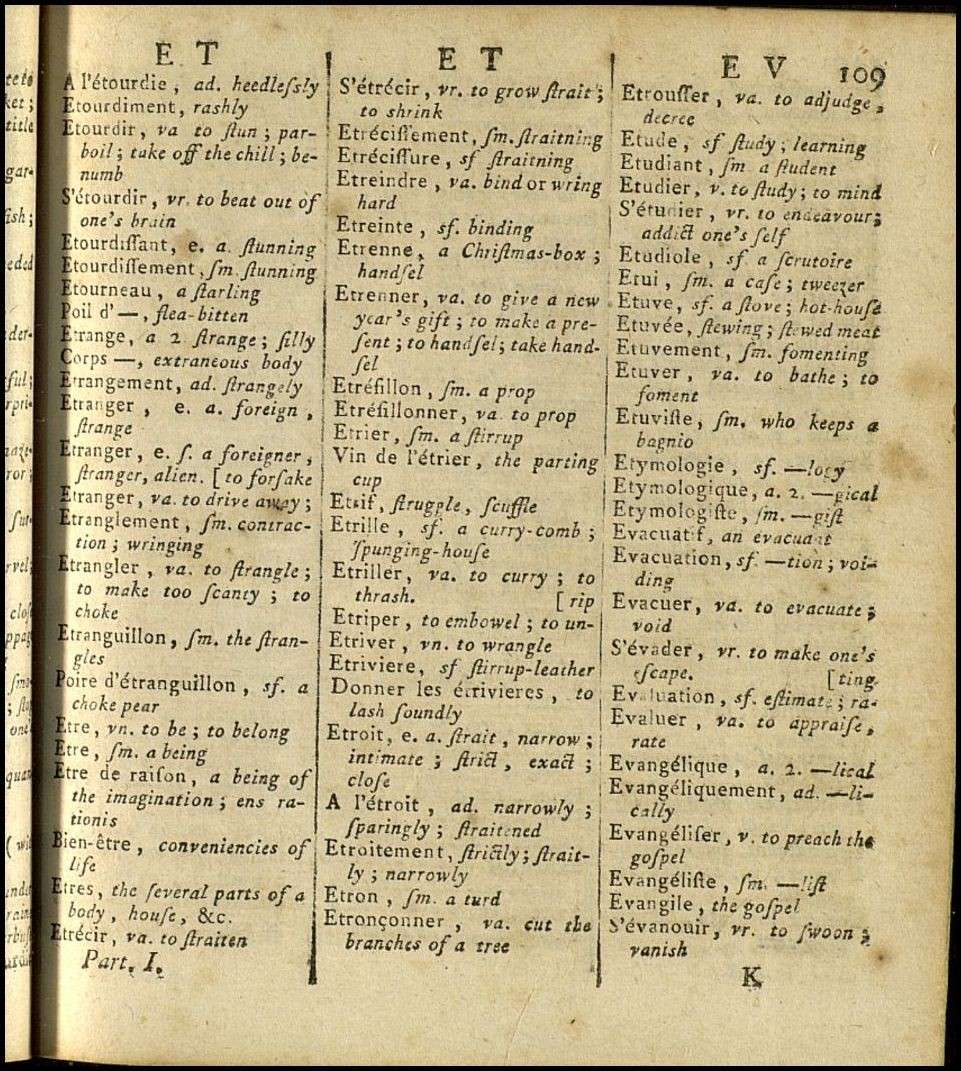 E T
A l'étourdie, ad. heedleſsly
Etourdiment, raſhly
Etourdir, va to ſtun; par-
boil; take off the chill; be-
numb
S'étourdir, vr. to beat out of
one's brain
Etourdiſſant, e. a. ſtunning
Etourdiſſement, ſm. ſtunning
Etourneau, a ſtarling
Poil d' —, flea-bitten
Etrange, a 2 ſtrange; ſilly
Corps —, extraneous body
Etrangement, ad. ſtrangely
Etranger, e. a. foreign,
ſtrange
Etranger, e. ſ. a foreigner,
ſtranger, alien. [to forſake
Etranger, va. to drive away;
Etranglement, ſm. contrac-
tion; wringing
Etrangler, va. to ſtrangle;
to make too ſcanty; to
choke
Etranguillon, ſm. the ſtran-
gles
Poire d'étranguillon, sf. a
choke pear
Etre, vn. to be; to belong
Etre, ſm. a being
Etre de raiſon, a being of
the imagination; ens ra-
tionis
Bien-être, conveniencies of
life
Etres, the ſeveral parts of a
body, houſe, &c.
Etrécir, va. to ſtraiten
Part. I.
E T
S'étrécir, vr. to grow ſtrait;
to shrink
Etréciſſement, ſm. ſtraitning
Etréciſſure, sf ſtraitning
Etreindre, va. bind or wring
hard
Etreinte, sf. binding
Etrenne, a Chriſtmas-box;
handſel
Etrenner, va. to give a new
year's gift; to make a pre-
ſent; to handſel; take hand-
ſel
Etréſillon, ſm. a prop
Etréſillonner, va. to prop
Etrier, ſm. a ſtirrup
Vin de l'étrier, the parting
cup
Etrif, ſtruggle, ſcuffle
Etrille, sf. a curry-comb;
ſpunging-houſe
Etriller, va. to curry; to
thrash. [rip
Etriper, to embowel; to un-
Etriver, vn. to wrangle
Etriviere, sf ſtirrup-leather
Donner les étrivieres, to
lash ſoundly
Etroit, e. a. ſtrait, narrow;
intimate; ſtrict, exact;
cloſe
A l'étroit, ad. narrowly;
ſparingly; ſtraitened
Etroitement, ſtrictly; ſtrait-
ly; narrowly
Etron, ſm. a turd
Etronçonner, va. cut the
branches of a tree
E V 109
Etrouſſer, va. to adjudge,
decree
Etude, sf ſtudy; learning
Etudiant, ſm a ſtudent
Etudier, v. to ſtudy; to mind
S'étudier, vr. to endeavour;
addict one's ſelf
Etudiole, sf a ſcrutoire
Etui, ſm. a caſe; tweezer
Etuve, sf. a ſtove; hot-houſe
Etuvée, ſtewing; ſtewed meat
Etuvement, ſm. fomenting
Etuver, va. to bathe; to
foment
Etuviſte, ſm. who keeps a
bagnio
Etymologie, sf. —logy
Etymologique, a. 2. —gical
Etymologiſte, ſm. —giſt
Evacuatif, an evacuant
Evacuation, sf. —tion; voi-
ding
Evacuer, va. to evacuate;
void
S'évader, vr. to make one's
eſcape. [ting.
Evaluation, sf. eſtimate; ra-
Evaluer, va. to appraiſe,
rate
Evangélique, a. 2. —lical
Evangéliquement, ad. —li-
cally
Evangéliſer, v. to preach the
goſpel
Evangéliſte, ſm. —liſt
Evangile, the goſpel
S'évanouir, vr. to ſwoon;
vanish
K